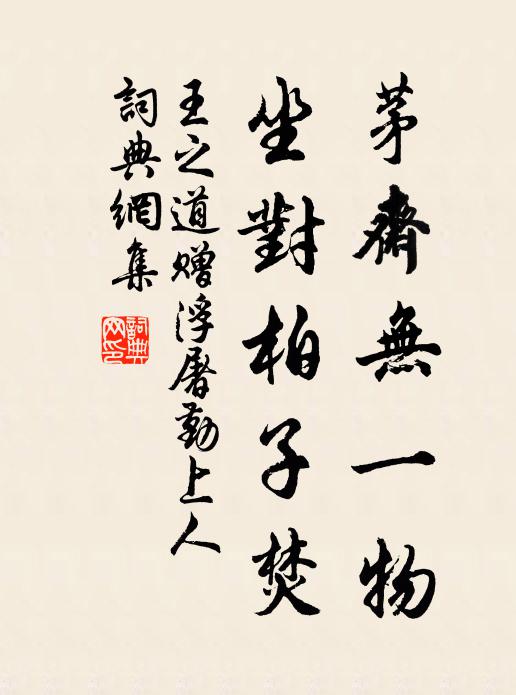 茅齋無一物
坐對柏子焚
王之道贈浮屠勤上人
詞典網集
詞典网印